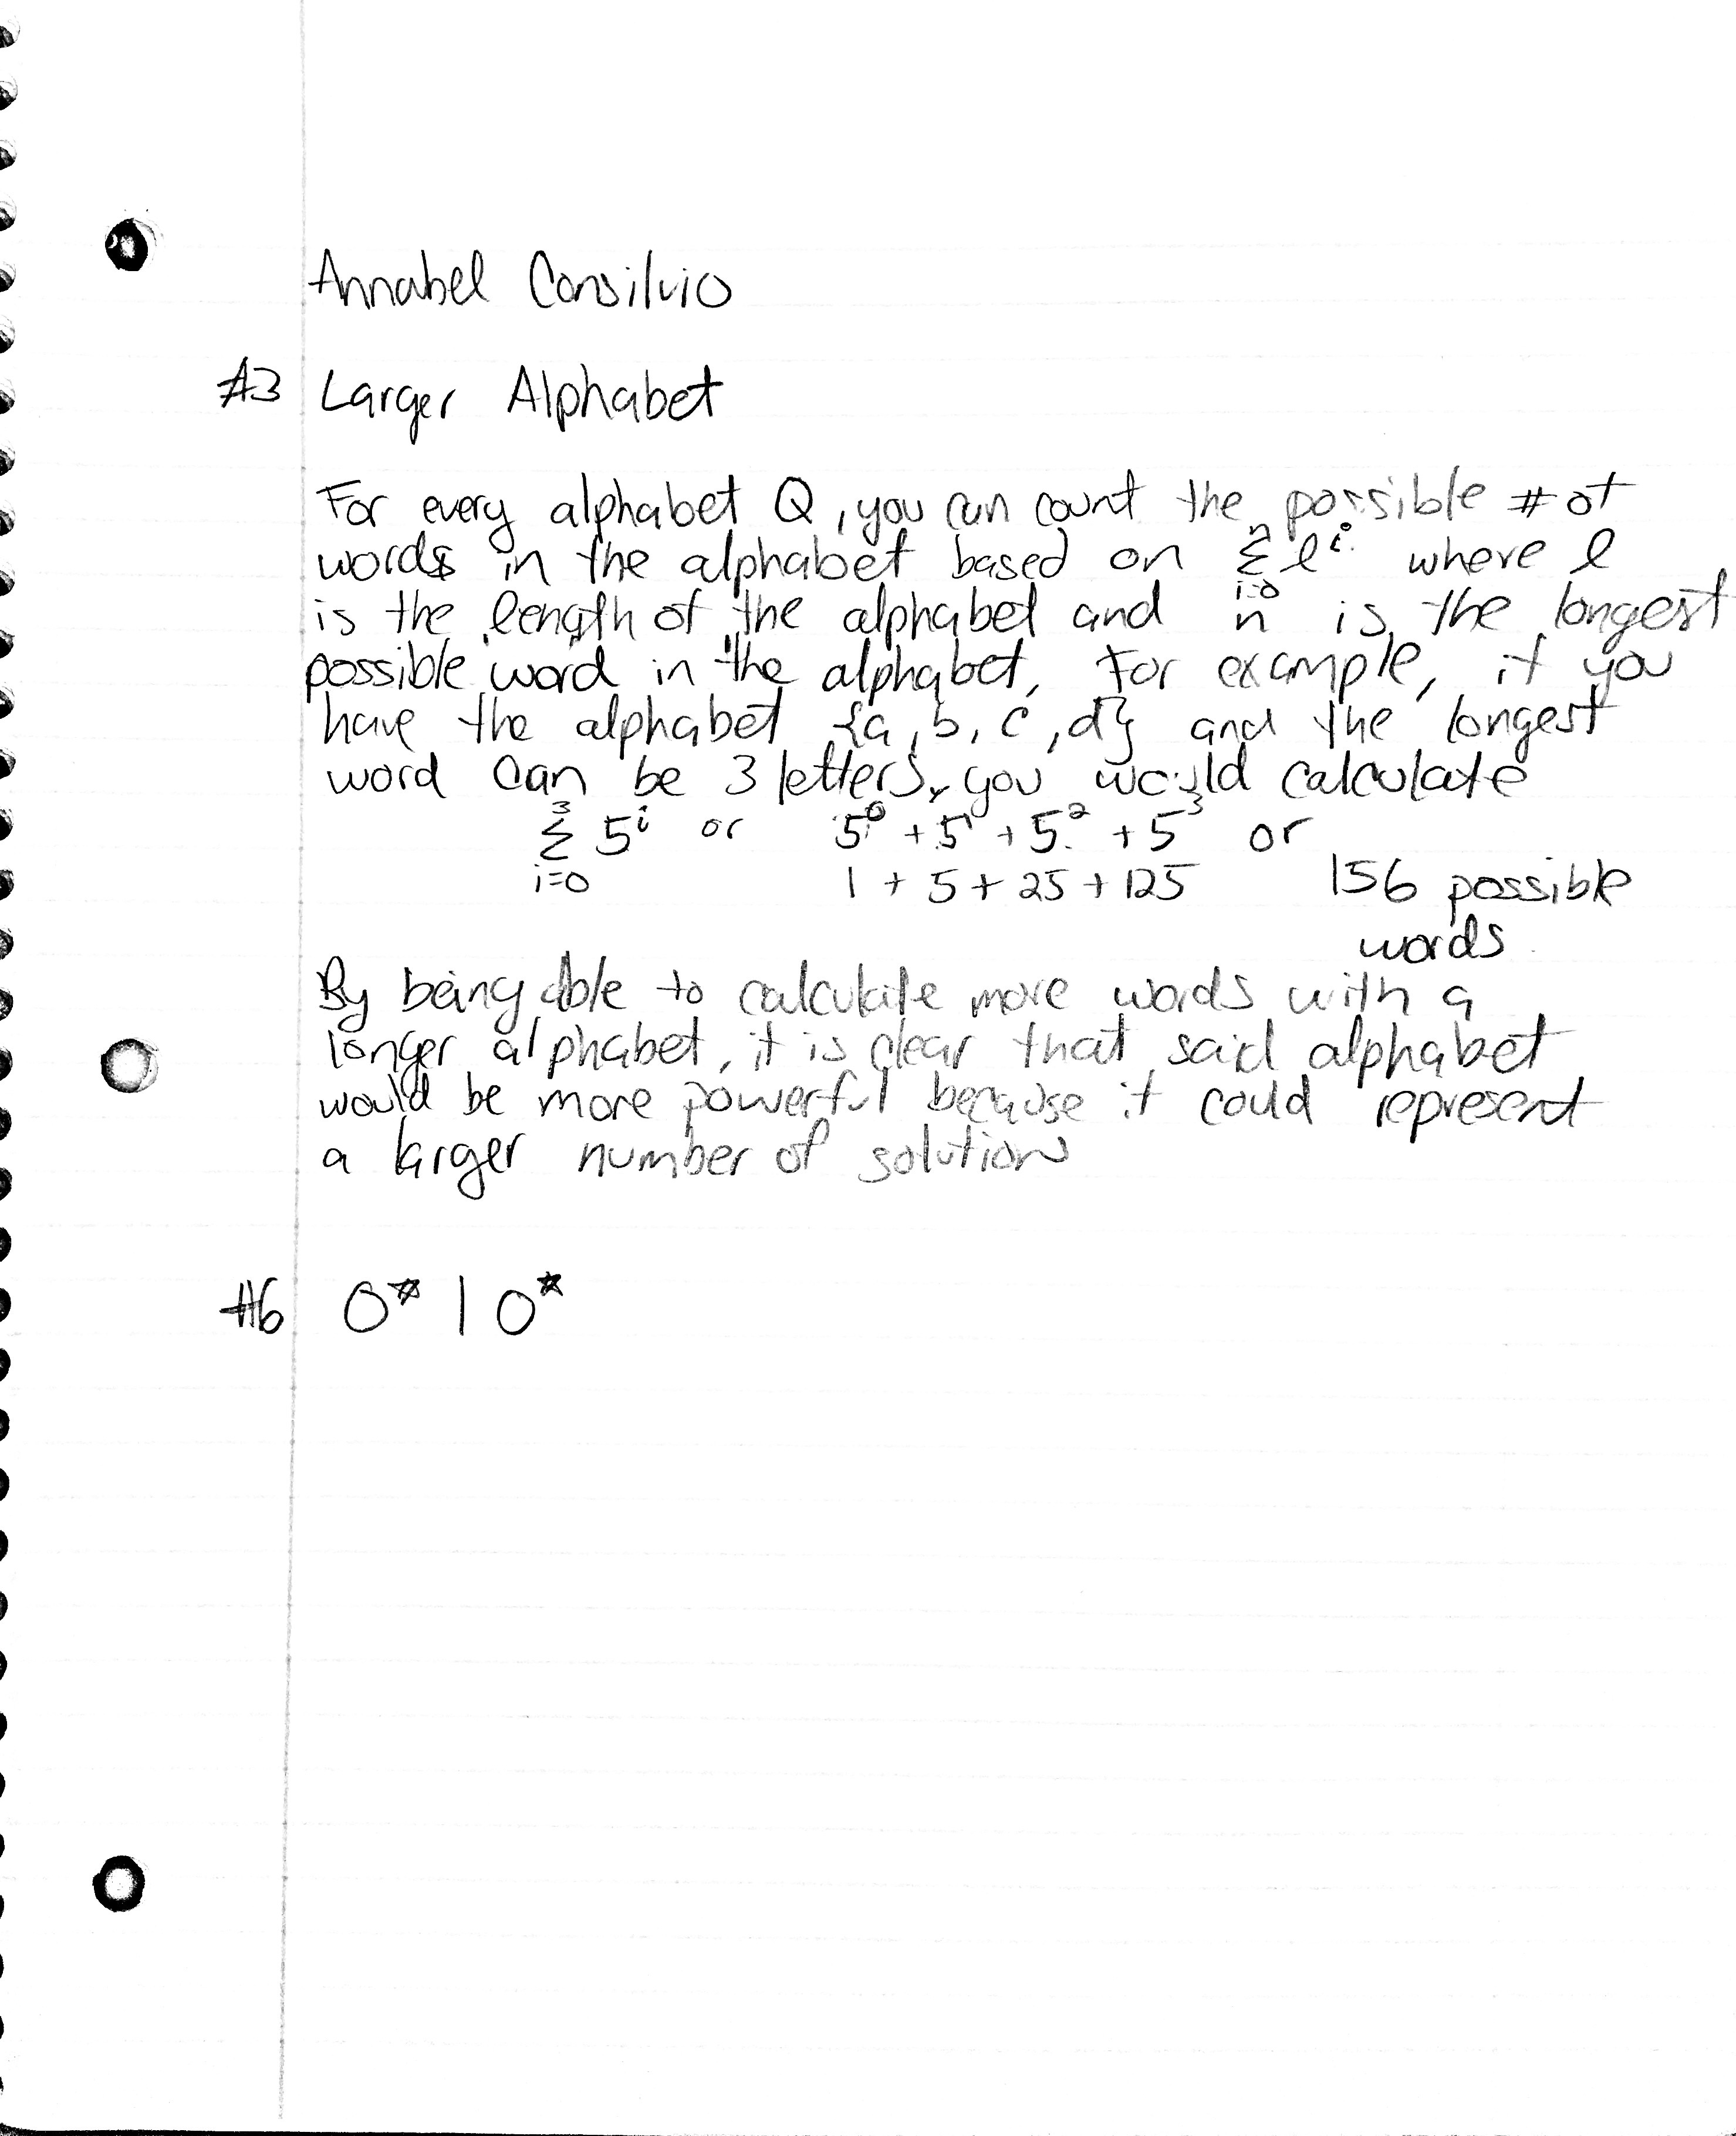 Annabel Consilvio
#3 Larger Alphabet
For every alphabet Q, you can count the possible # of
words in the alphabet based on n Σ i=0 ℓ^i where ℓ
is the length of the alphabet and n is the longest
possible word in the alphabet. For example, if you
have the alphabet {a, b, c, d} and the longest
word can be 3 letters, you would calculate
3 Σ i=0 5^i or 5^0 + 5^1 + 5^2 + 5^3 or
1 + 5 + 25 + 125 156 possible
words.
By being able to calculate more words with a
longer alphabet, it is clear that said alphabet
would be more powerful because it could represent
a larger number of solutions
#6 0* | 0*